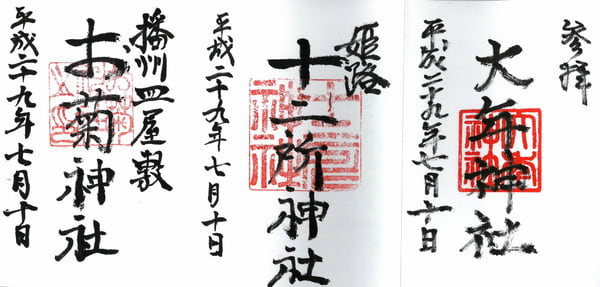 参拝
大年神社
平成二十九年七月十日
姫路
十二所神社
平成二十九年七月十日
播州皿屋敷
お菊神社
平成二十九年七月十日